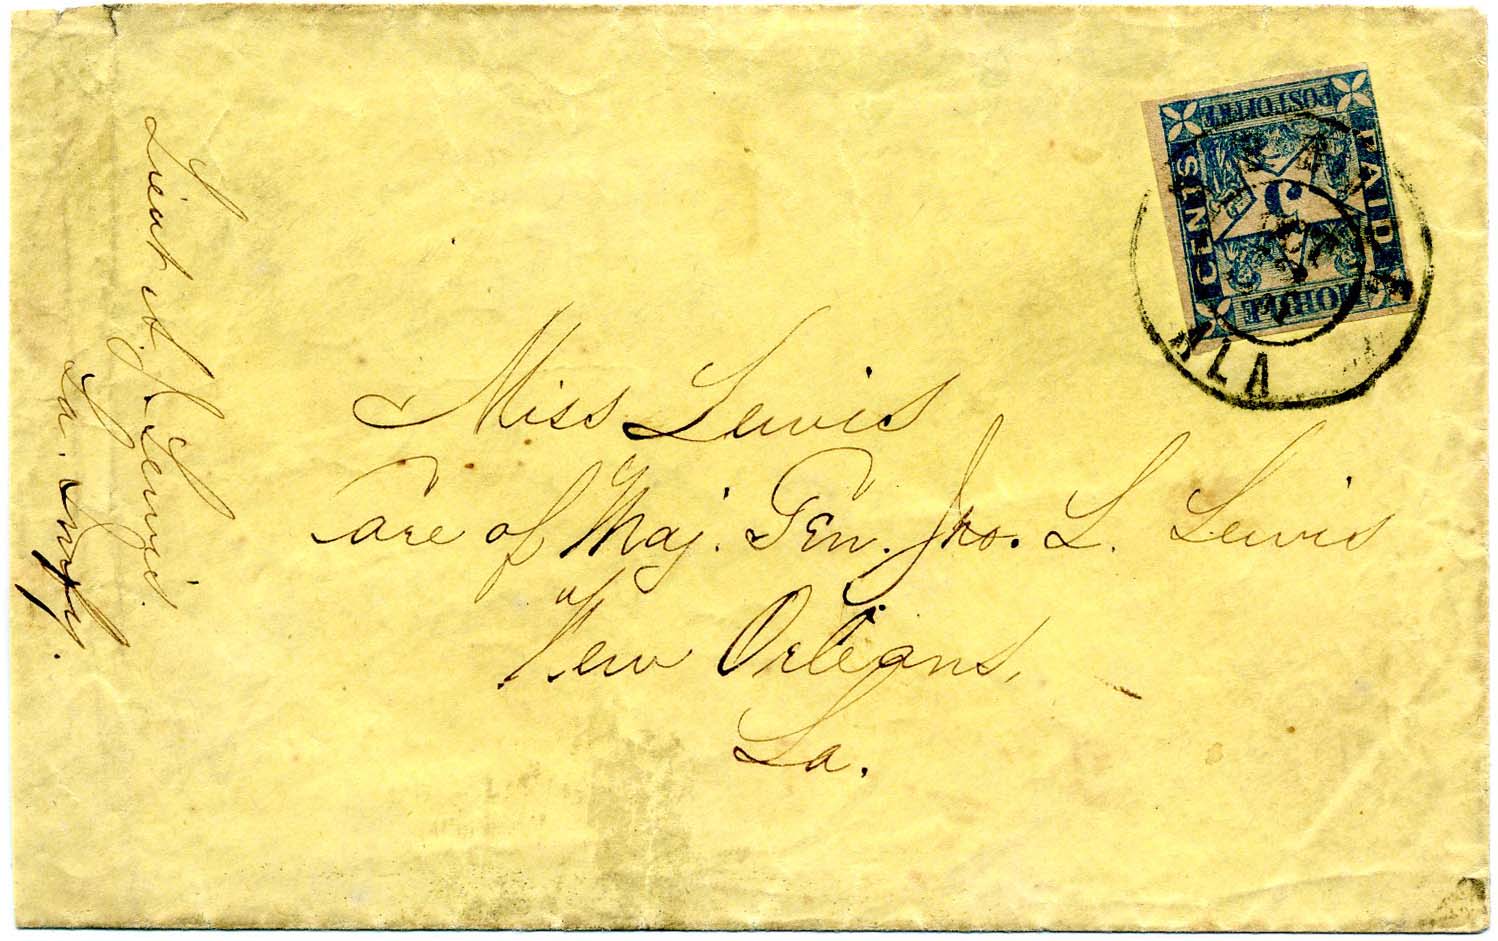 Lieut A. J. Lewis
La.
POST OFFICE
PAID
5
CENTS
MOBILE
ALA
Miss Lewis
Care of Maj. Gen. Jno. L. Lewis
New Orleans,
La.